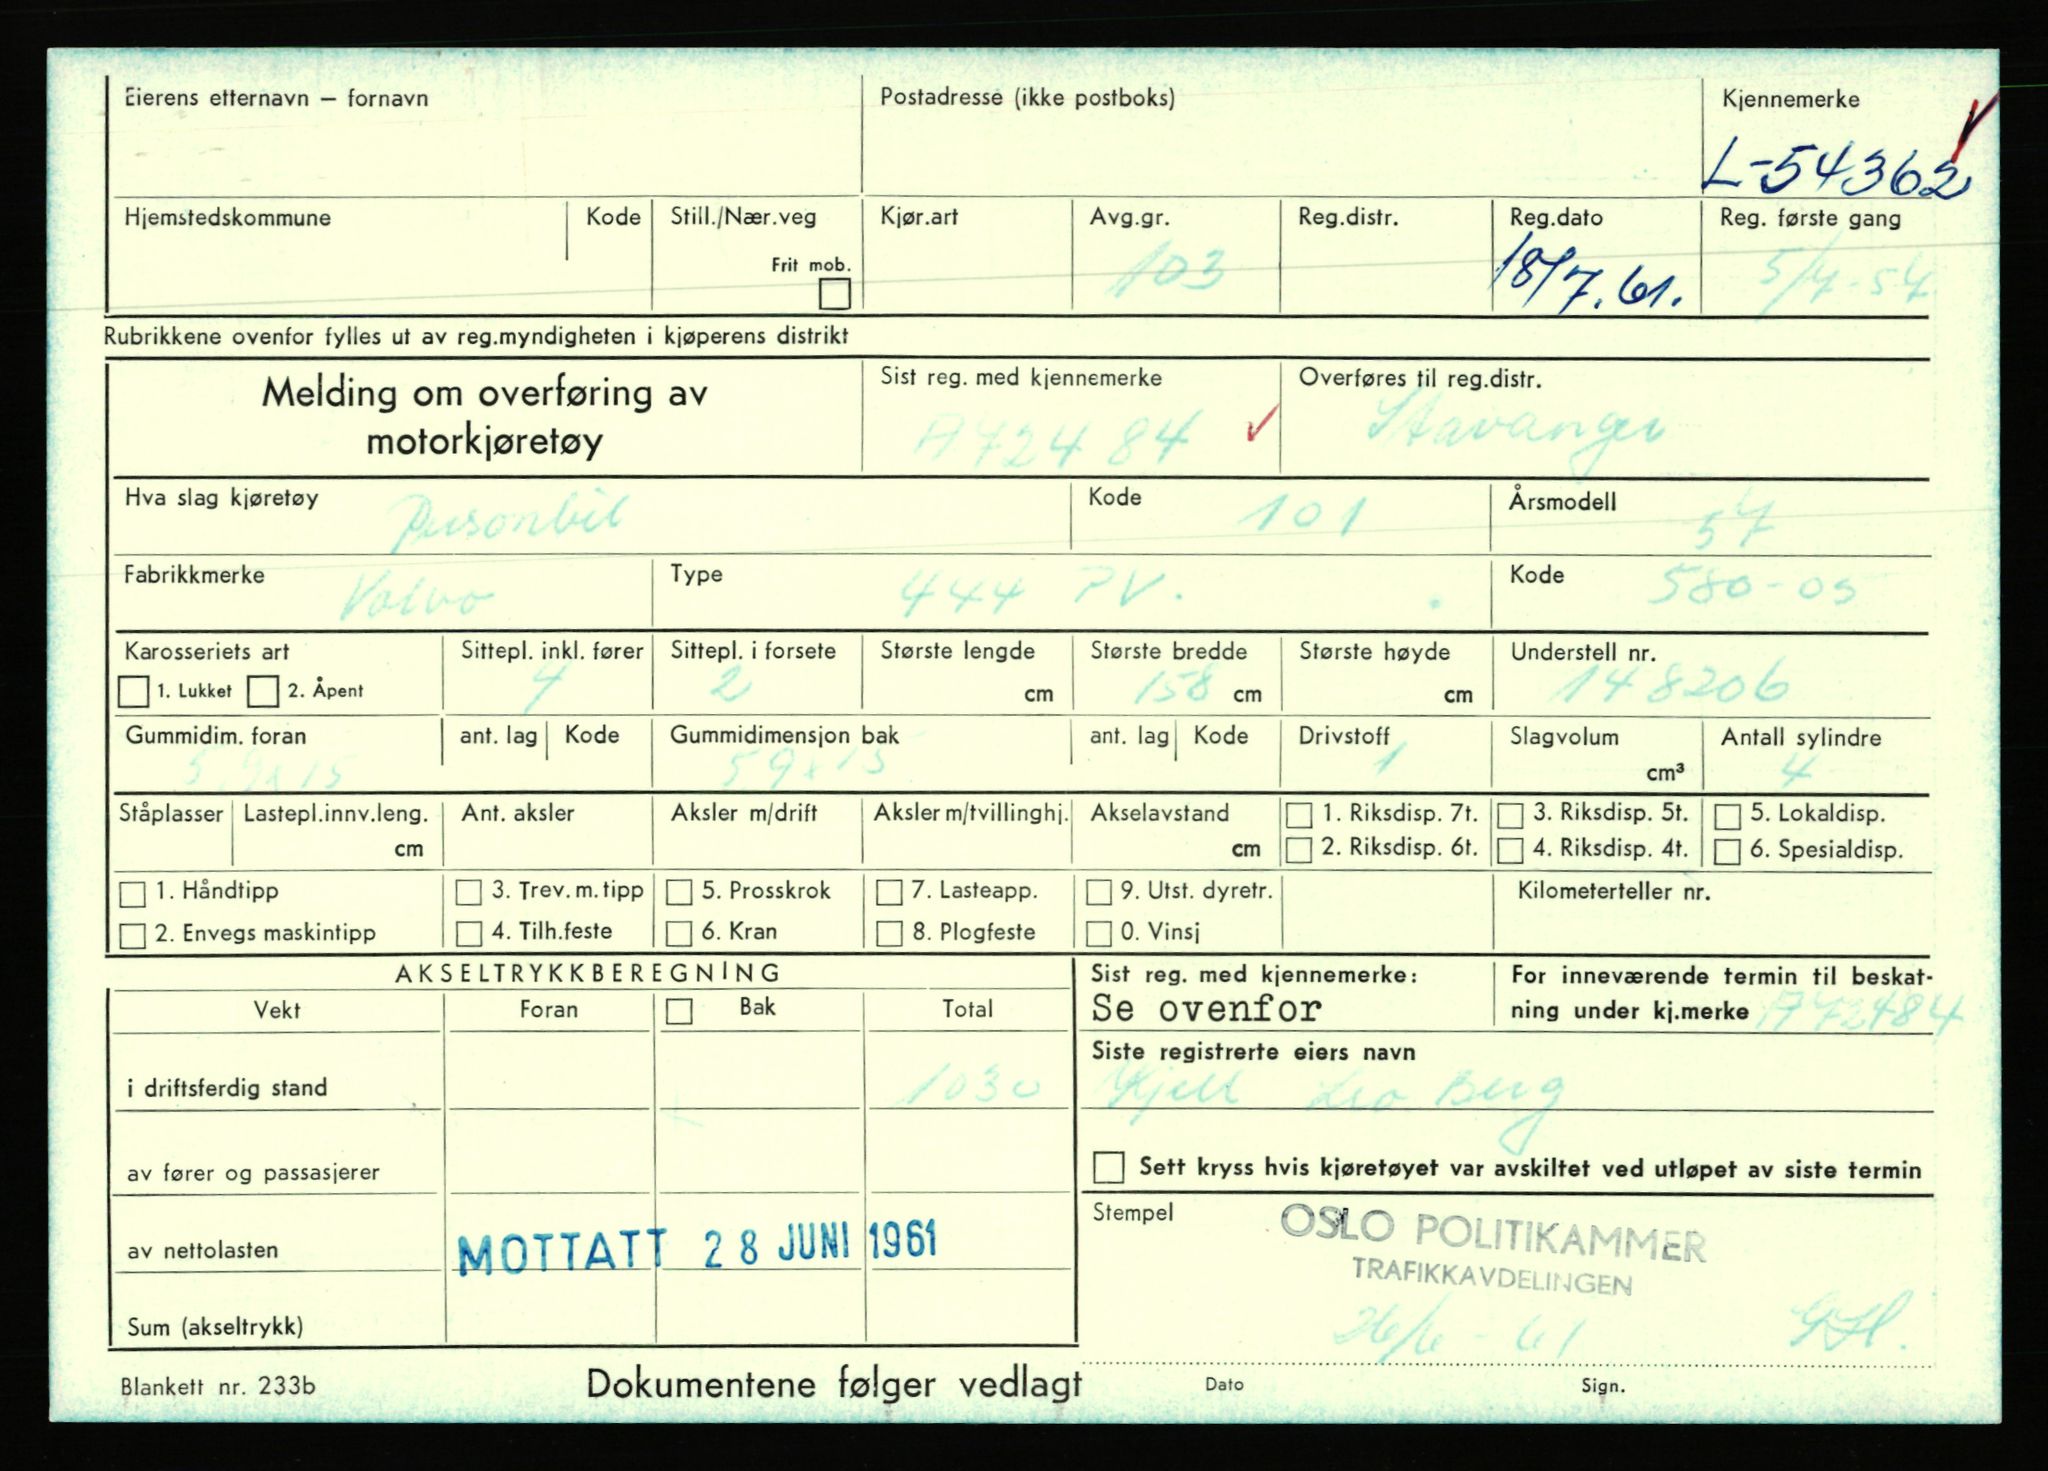 Eierens etternavn – fornavn
Postadresse (ikke postboks)
Kjennemerke
L-54362
Hjemstedskommune
Kode
Still./Nær.veg
Frit mob.
Kjør.art
Avg.gr.
103
Reg.distr.
Reg.dato
18/7.61.
Reg. første gang
5/4-54
Rubrikkene ovenfor fylles ut av reg.myndigheten i kjøperens distrikt
Melding om overføring av
motorkjøretøy
Sist reg. med kjennemerke
A72484
Overføres til reg.distr.
Stavanger
Hva slag kjøretøy
Personbil
Kode
101
Årsmodell
54
Fabrikkmerke
Volvo
Type
444 PV.
Kode
580-05
Karosseriets art
1. Lukket
2. Åpent
Sittepl. inkl. fører
4
Sittepl. i forsete
2
Største lengde
cm
Største bredde
158 cm
Største høyde
cm
Understell nr.
148206
Gummidim. foran
5,9x15
ant. lag
Kode
Gummidimensjon bak
59x15
ant. lag
Kode
Drivstoff
1
Slagvolum
cm³
Antall sylindre
4
Ståplasser
Lastepl.innv.leng.
cm
Ant. aksler
Aksler m/drift
Aksler m/tvillinghj.
Akselavstand
cm
1. Riksdisp. 7t.
2. Riksdisp. 6t.
3. Riksdisp. 5t.
4. Riksdisp. 4t.
5. Lokaldisp.
6. Spesialdisp.
1. Håndtipp
2. Envegs maskintipp
3. Trev. m. tipp
4. Tilh.feste
5. Prosskrok
6. Kran
7. Lasteapp.
8. Plogfeste
9. Utst. dyretr.
0. Vinsj
Kilometerteller nr.
AKSELTRYKKBEREGNING
Vekt
Foran
Bak
Total
i driftsferdig stand
1030
av fører og passasjerer
av nettolasten
MOTTATT 28 JUNI 1961
Sum (akseltrykk)
Sist reg. med kjennemerke:
Se ovenfor
For inneværende termin til beskat-
ning under kj.merke A72484
Siste registrerte eiers navn
Kjell Leo Berg
Sett kryss hvis kjøretøyet var avskiltet ved utløpet av siste termin
Stempel
OSLO POLITIKAMMER
TRAFIKKAVDELINGEN
26/6-61
Dato
Sign.
Blankett nr. 233b
Dokumentene følger vedlagt